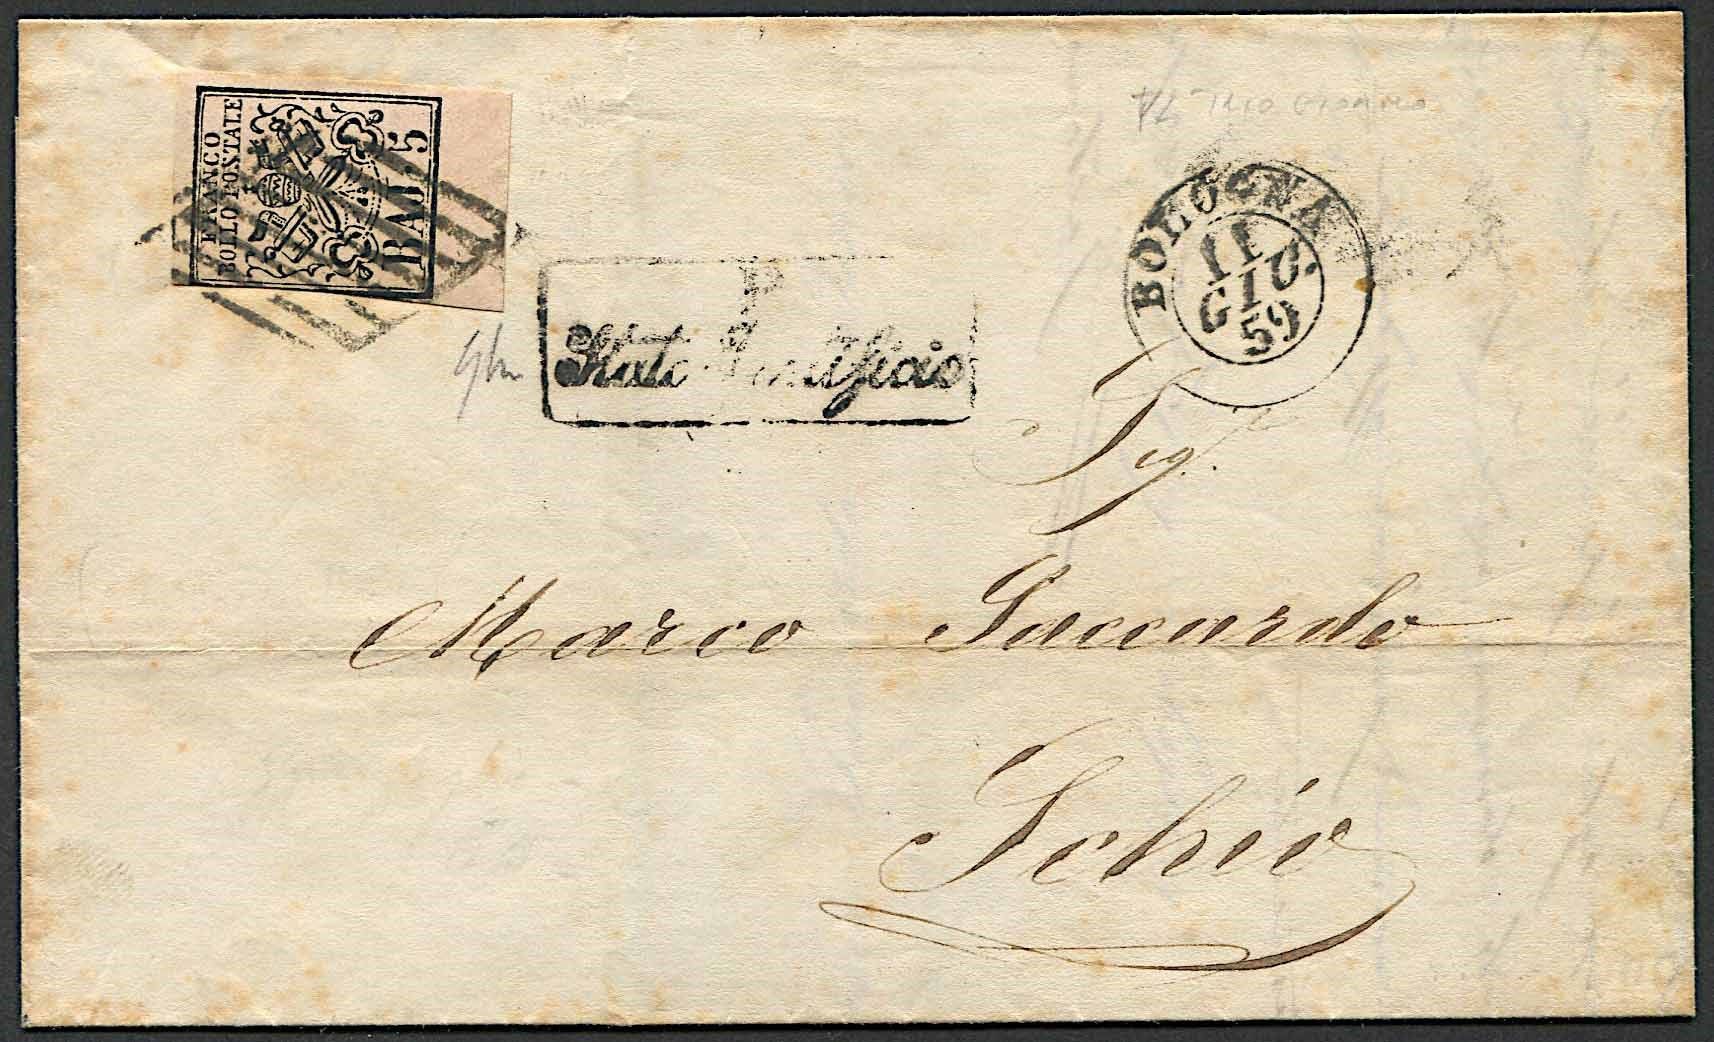 FRANCO
BOLLO POSTALE
BAJ. 5
BOLOGNA
11
GIU.
59
Stato Pontificio
Sig.r
Marco Saccardo
Schio